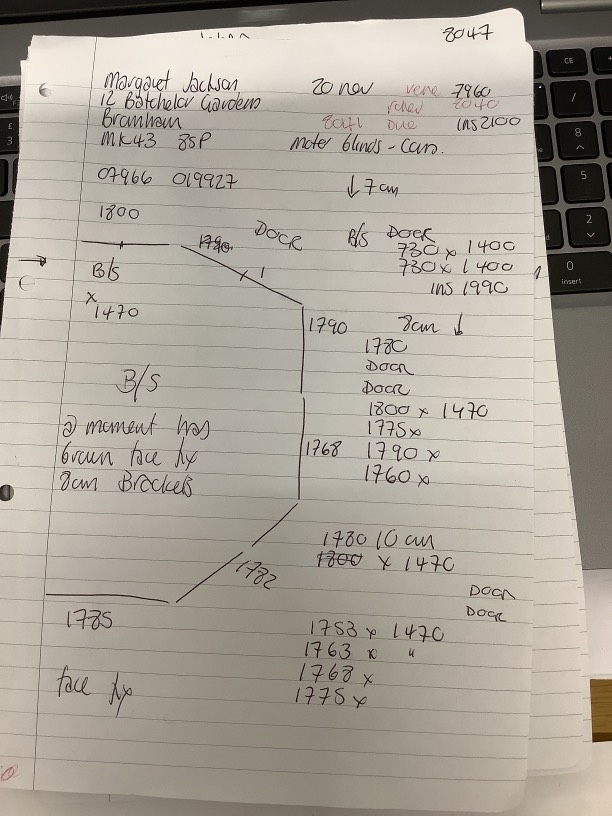 8047
Margaret Jackson 20 nov vene 7960
12 Batchelor Gardens 2040
Bromham Due ins 2100
MK43 8SP Motor blinds - Cars.
07966 019927 ↓ 7cm
1800
1790 DOOR B/S DOOR
730 x 1400
B/S 730 x 1400
x ins 1990
1470
1790 8cm ↓
1780
DOOR
B/S DOOR
1800 x 1470
@ moment has 1775 x
brown face fix 1768 1790 x
8cm Brackets 1760 x
1780 10 cm
1800 x 1470
1782
DOOR
DOOR
1785 1753 x 1470
1763 x "
1768 x
face fix 1775 x
CE
/
£
3
8
5
2
0
insert